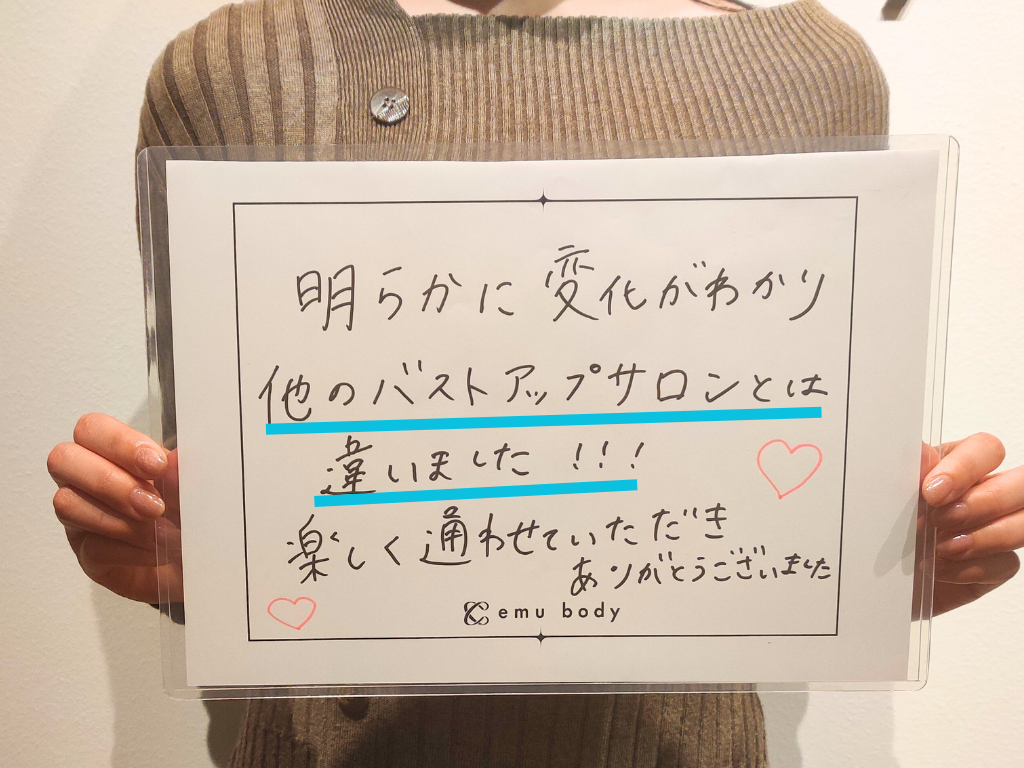 明らかに変化がわかり
他のバストアップサロンとは
違いました!!!
楽しく通わせていただき
ありがとうございました
emu body